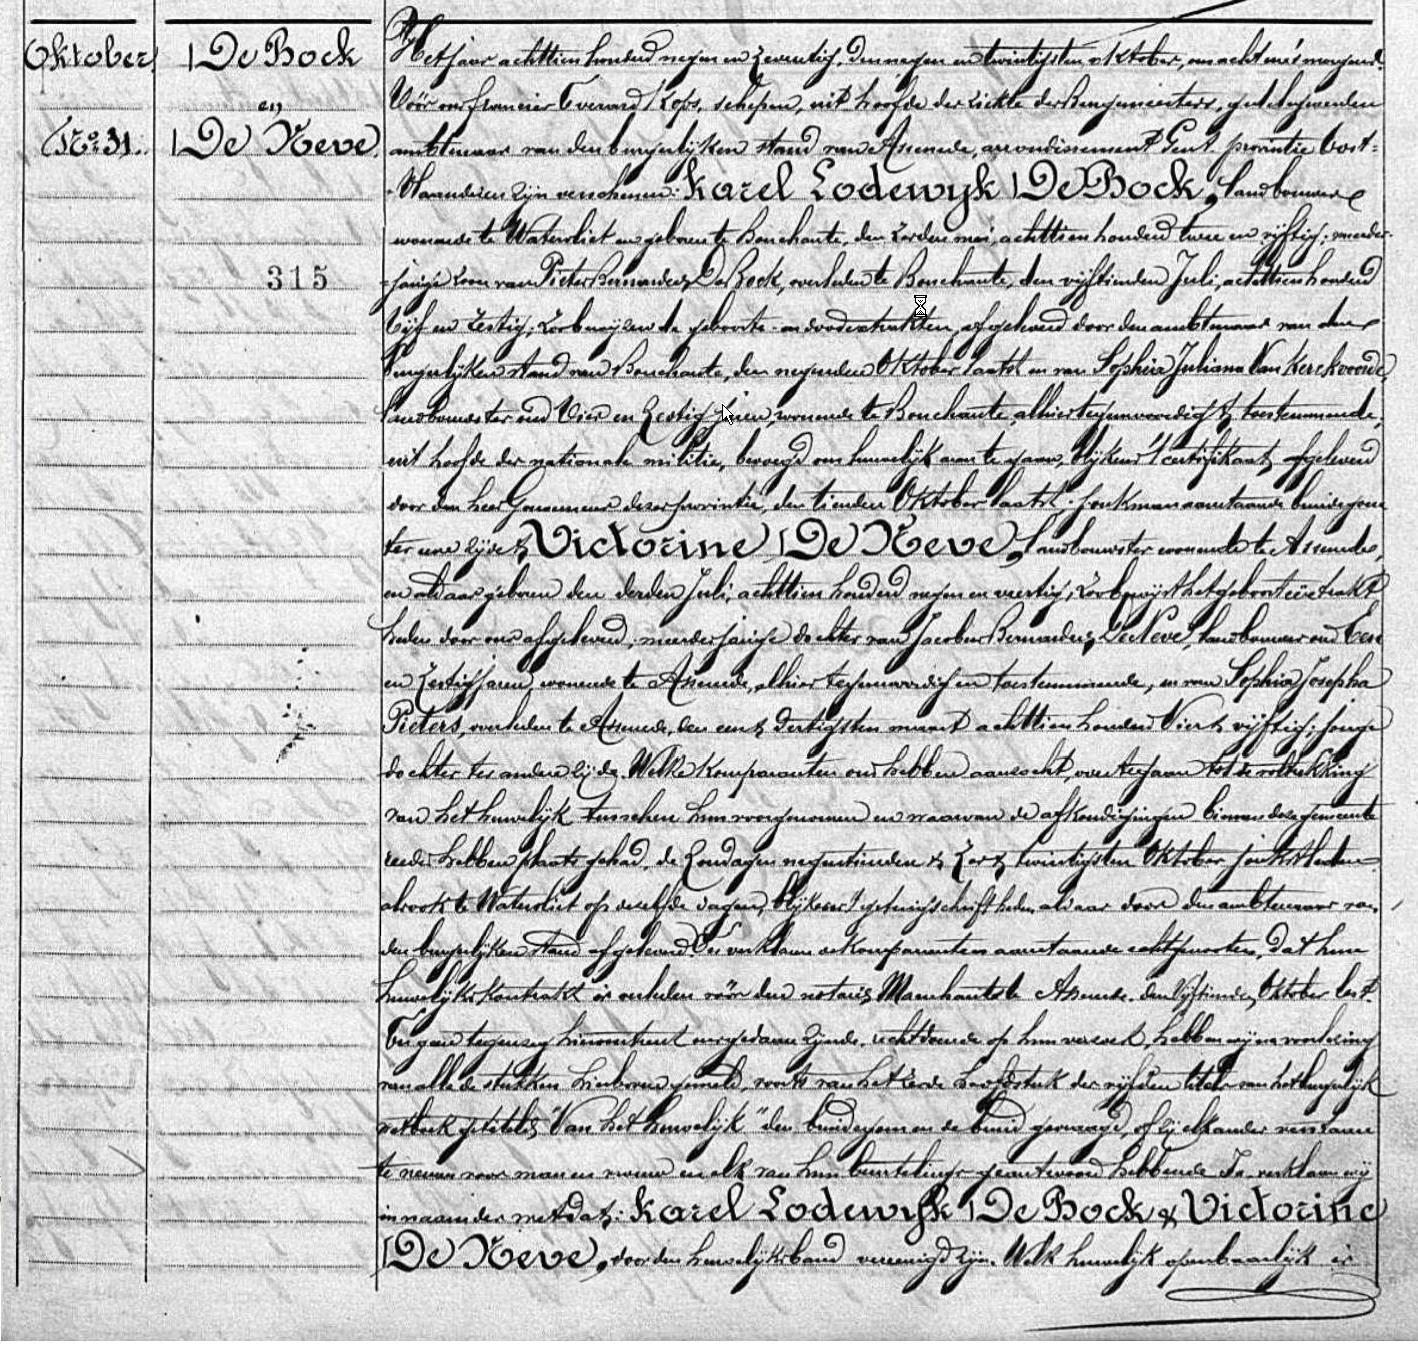 Oktober
No 31.
De Bock
en
De Neve
315
Het jaar achttien honderd negen en zeventig, den negen en twintigsten oktober, om acht ure 's morgens.
Vóór ons Francier Everaard Kops, schepen, uit hoofde der ziekte der Burgemeesters, gedelegeerden
ambtenaar van den burgerlijken stand van Assenede, arrondissement Gent, provintie Oost=
Vlaanderen zijn verschenen: Karel Lodewijk De Bock, landbouwer
wonende te Watervliet en geboren te Bouchaute, den zesden mei, achttien honderd twee en vijftig; meerder=
=jarige zoon van Pieter Bernardus De Bock, overleden te Bouchaute, den vijftienden Juli, achttien honderd
Vijf en zestig; zoo bewijzen de geboorte en doodextrakten, afgeleverd door den ambtenaar van den
burgerlijken stand van Bouchaute, den negenden Oktober laatst en van Sophia Juliana Van Kerckvoorde,
landbouwster oud Vier en Zestig jaren, wonende te Bouchaute, alhier tegenwoordig & toestemmende,
uit hoofde der nationale militie, bevoegd om huwelijk aan te gaan, blijkens 't certifikaat, afgeleverd
door den heer Gouverneur dezer provintie, den tienden Oktober laatst; jonkman aanstaande bruidegom
ter eene zijde & Victorine De Neve, landbouwster wonende te Assenede,
en aldaar geboren den derden Juli, achttien honderd negen en veertig, zoo bewijst het geboorteextrakt
heden door ons afgeleverd; meerderjarige dochter van Jacobus Bernardus De Neve, landbouwer oud Een
en Zestig jaren, wonende te Assenede, alhier tegenwoordig en toestemmende, en van Sophia Josepha
Pieters, overleden te Assenede, den een & dertigsten maart achttien honderd Vier & vijftig; jonge
dochter ter andere zijde. Welke Komparanten ons hebben aanzocht, over te gaan tot de voltrekking
van het huwelijk tusschen hun voorgenomen en waarvan de afkondigingen binnen deze gemeente
reeds hebben plaats gehad, de Zondagen negentienden & Zes & twintigsten Oktober jonkstleden
alsook te Watervliet op dezelfde dagen, blijkens 't getuigschrift heden, aldaar door den ambtenaar van
den burgerlijken stand afgeleverd. Ons verklaren de Komparanten aanstaande echtgenooten, dat hun
huwelijks Kontrakt is verleden vóór den notaris Manhaut te Assenede, den Vijftienden Oktober lest.
Geen tegenzeg hieromtrent ons gedaan zijnde, rechtdoende op hun verzoek, hebben wij na voorlezing
van alle de stukken hierboven gemeld, voorts van het zesde hoofdstuk der vijfden titel van het burgerlijk
wetboek getiteld "Van het huwelijk" den bruidegom en de bruid gevraagd, of zij elkander verklaren
te nemen voor man en vrouw en elk van hun beurtelings geantwoord hebbende Ja, verklaren wij
in naam der wet dat: Karel Lodewijk De Bock & Victorine
De Neve, door den huwelijksband vereenigd zijn. Welk huwelijk openbaarlijk is